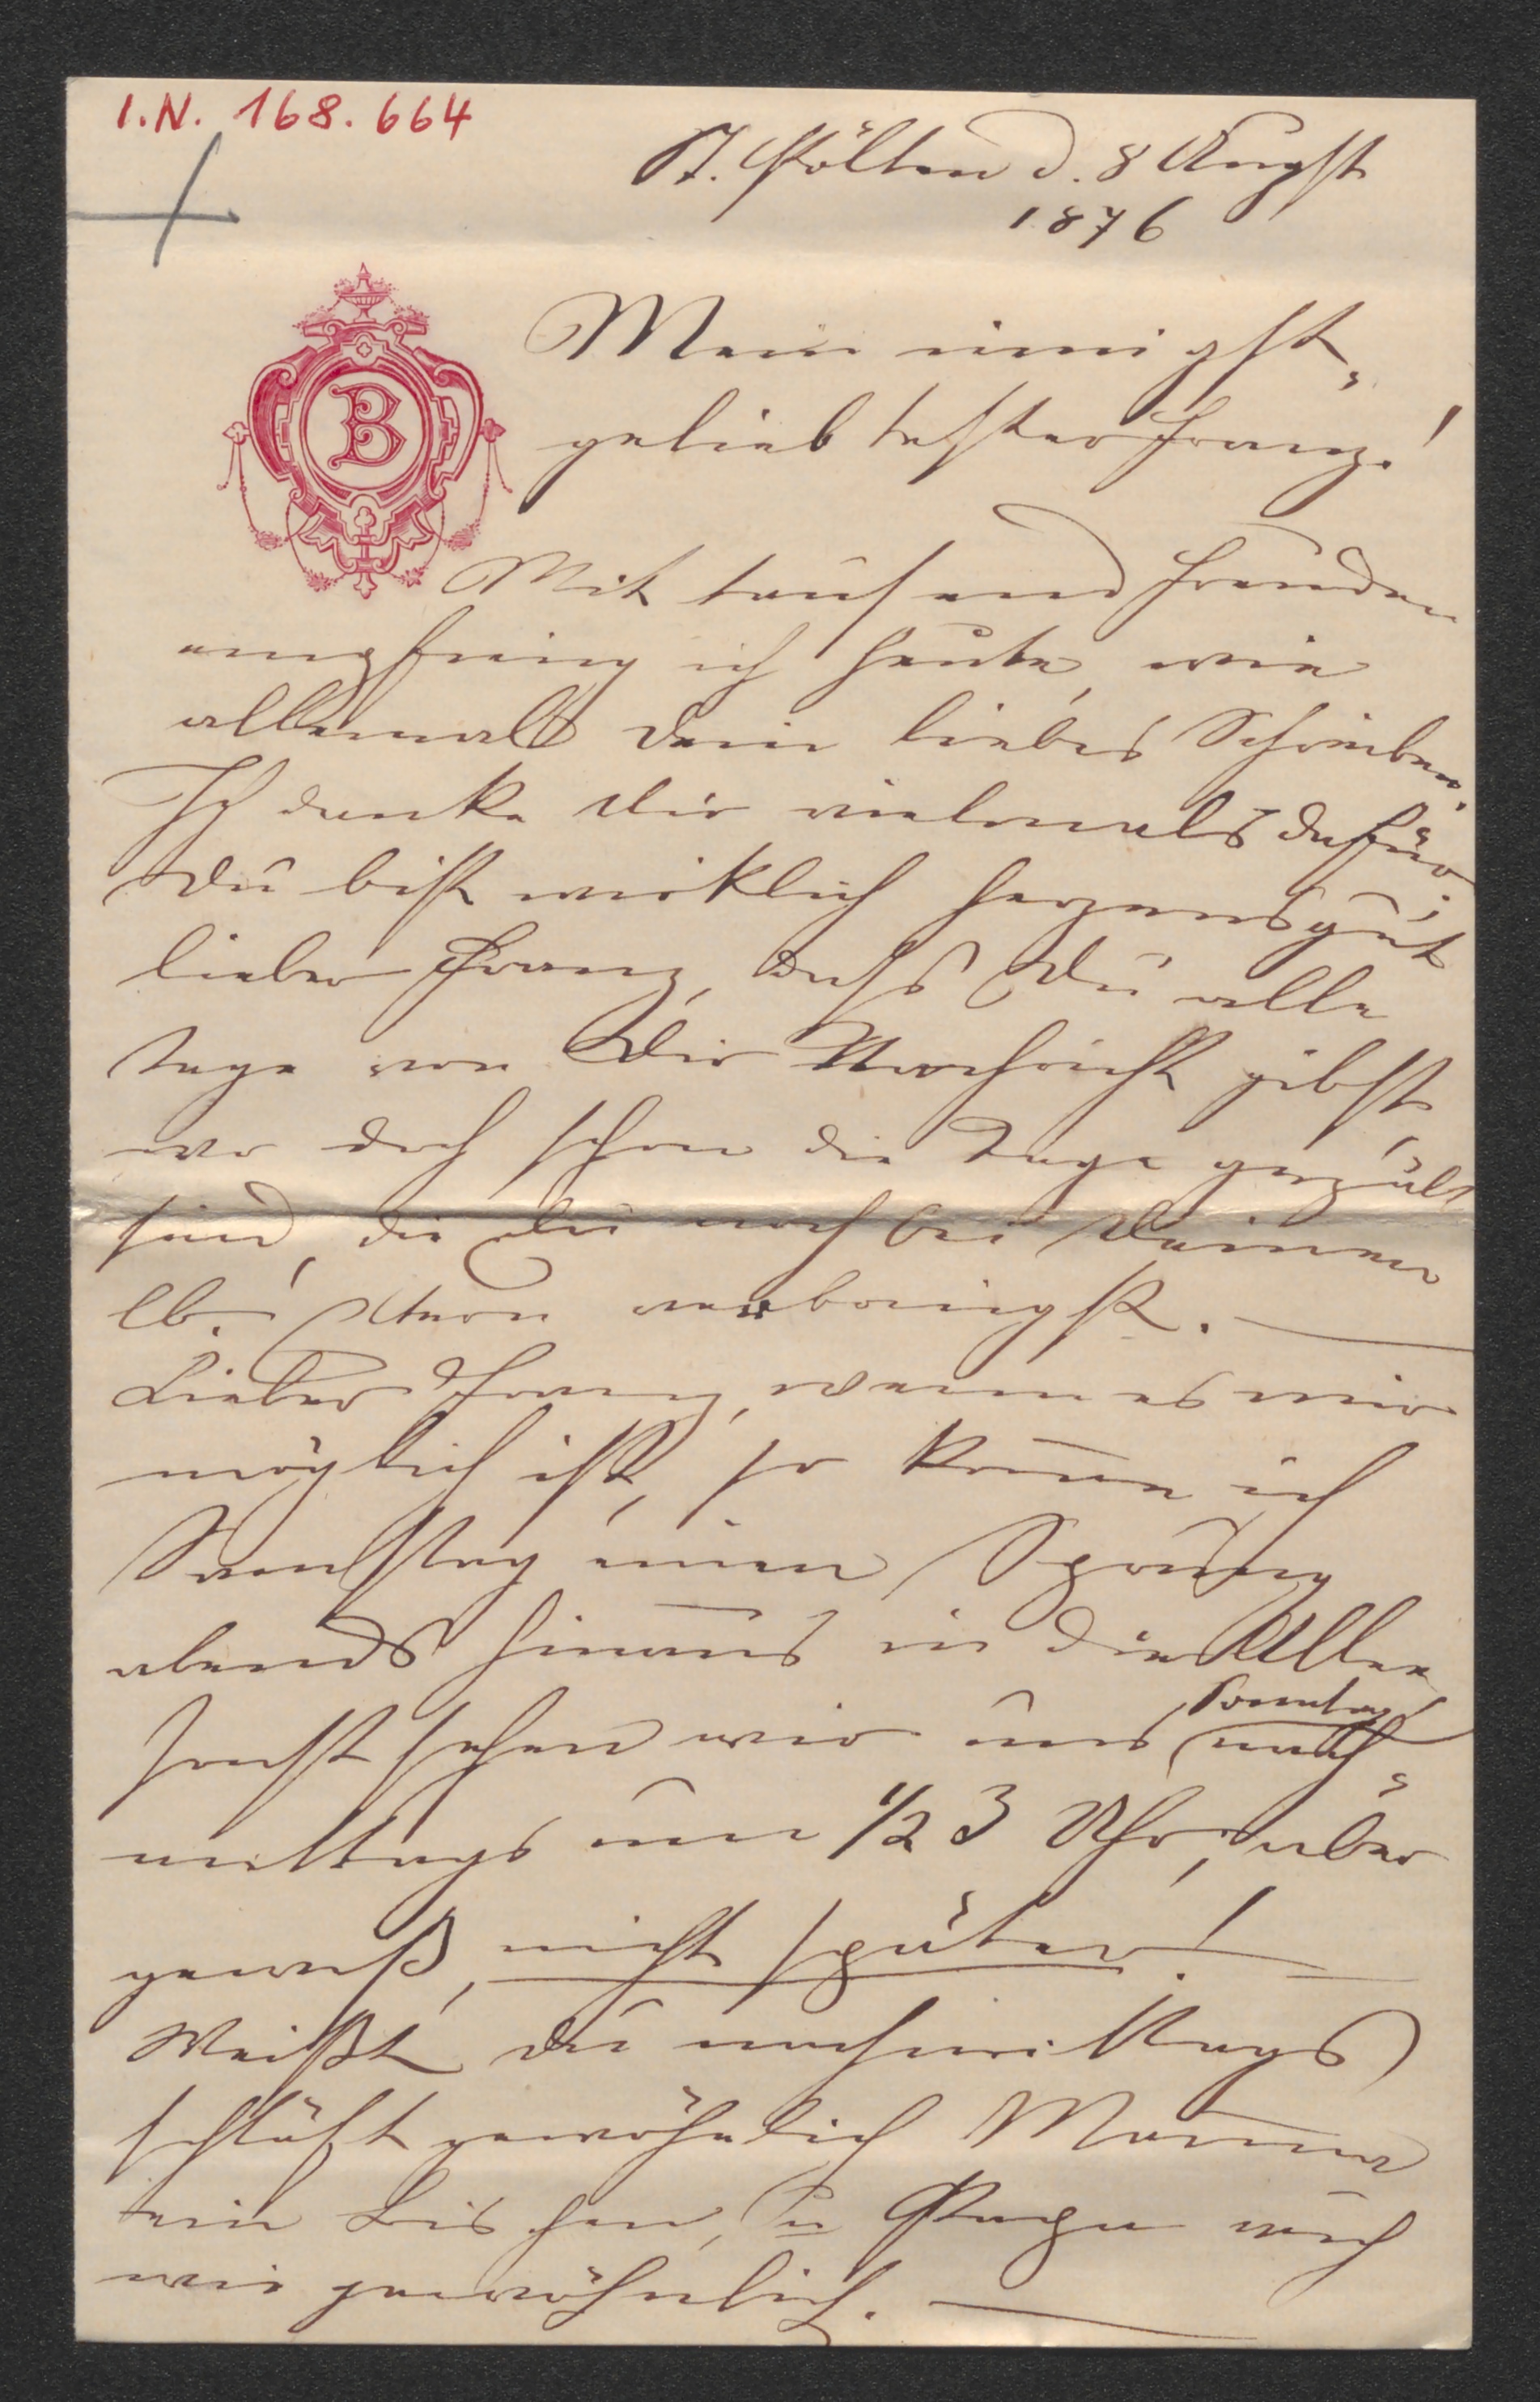 I.N. 168.664
St. Pölten d. 8 Augst
1876
B
Mein innigst„
geliebtester Franz!
Mit tausend Freuden
empfing ich heute, wie
allemal dein liebes Schreiben.
Ich danke Dir vielmals dafür;
Du bist wirklich herzensgut
lieber Franz, dass Du alle
Tage von Dir Nachricht gibst,
wo doch schon die Tage gezält
sind, die Du noch bei Deinen
lb. Ältern verbringst. —
Lieber Franz, wenn es mir
möglich ist, so kom̅e ich
Samstag einen Sprung
abends hinaus in die Allee
sonst sehen wir uns Sonntag nach„
mittags um 1/2 3 Uhr, aber
gewiß, nicht später! —
Weißt du nachmittags
schläft gewöhnlich Mama
ein Bischen, u Papa auch
wie gewöhnlich. —